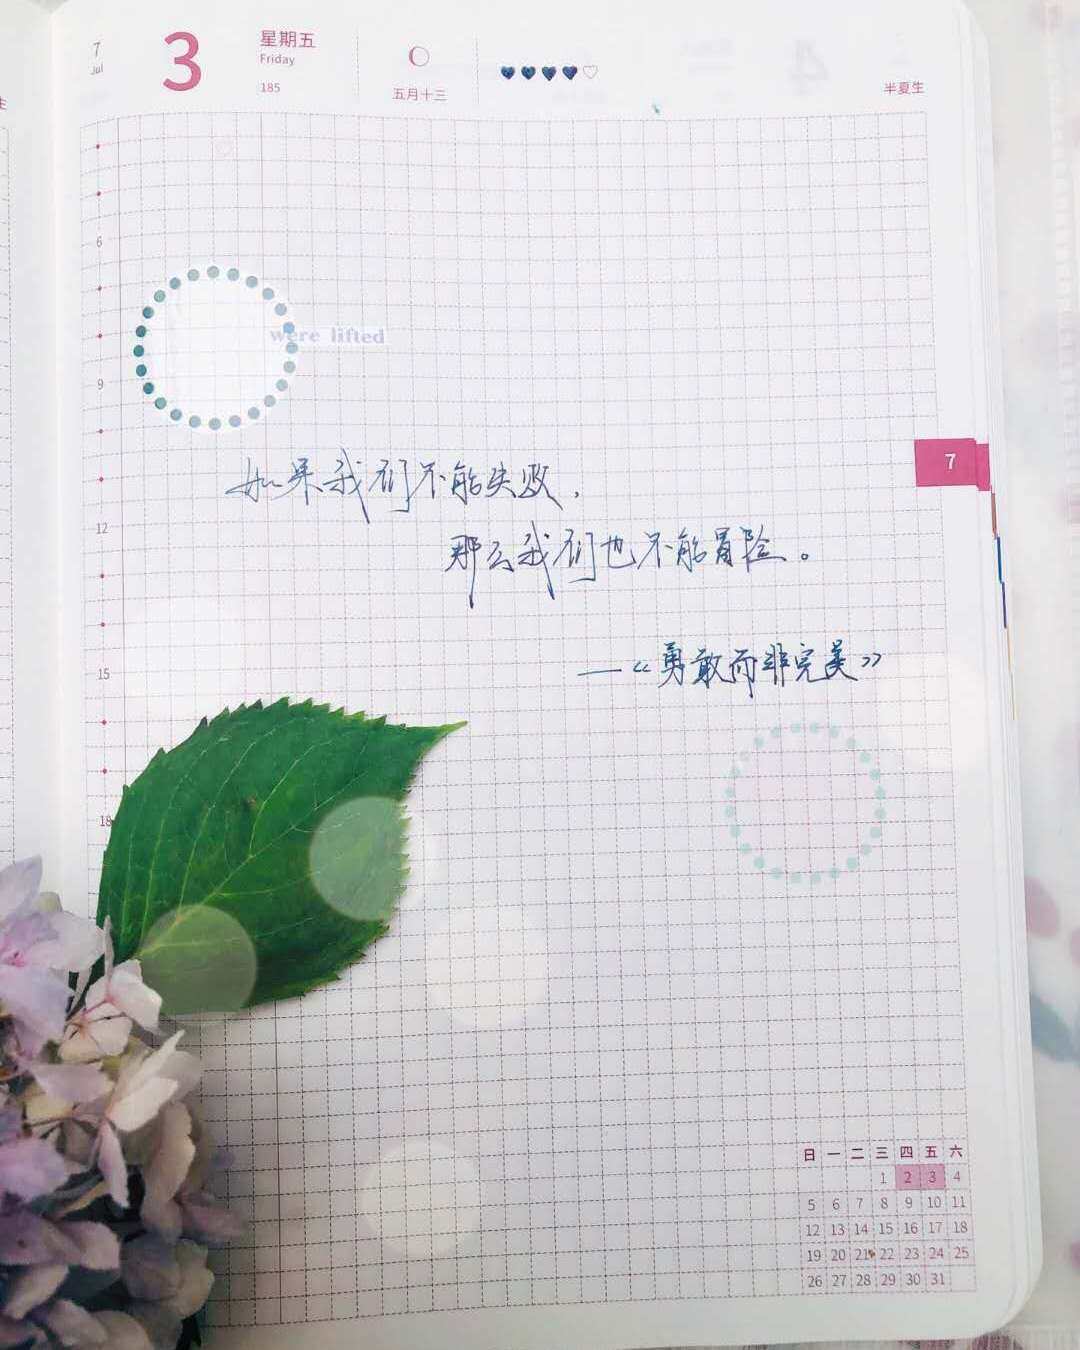 7
Jul
3
星期五
Friday
185
五月十三
半夏生
6
were lifted
9
如果我们不能失败，
7
12
那么我们也不能冒险。
——《勇敢而非完美》
15
18
日 一 二 三 四 五 六
1 2 3 4
5 6 7 8 9 10 11
12 13 14 15 16 17 18
19 20 21 22 23 24 25
26 27 28 29 30 31